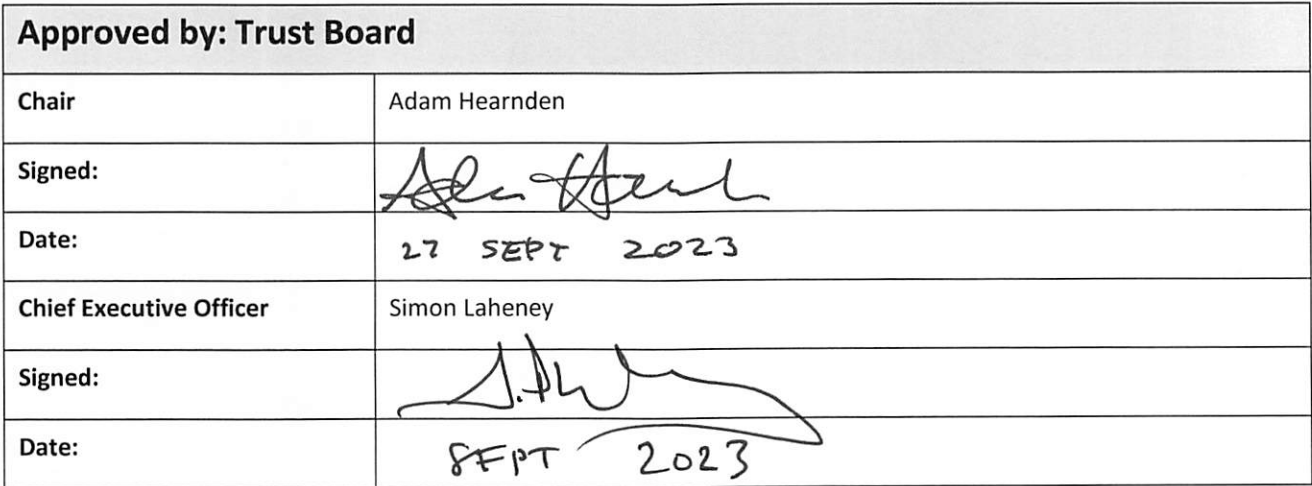 Approved by: Trust Board
Chair Adam Hearnden
Signed:
Date: 27 SEPT 2023
Chief Executive Officer Simon Laheney
Signed:
Date: SEPT 2023